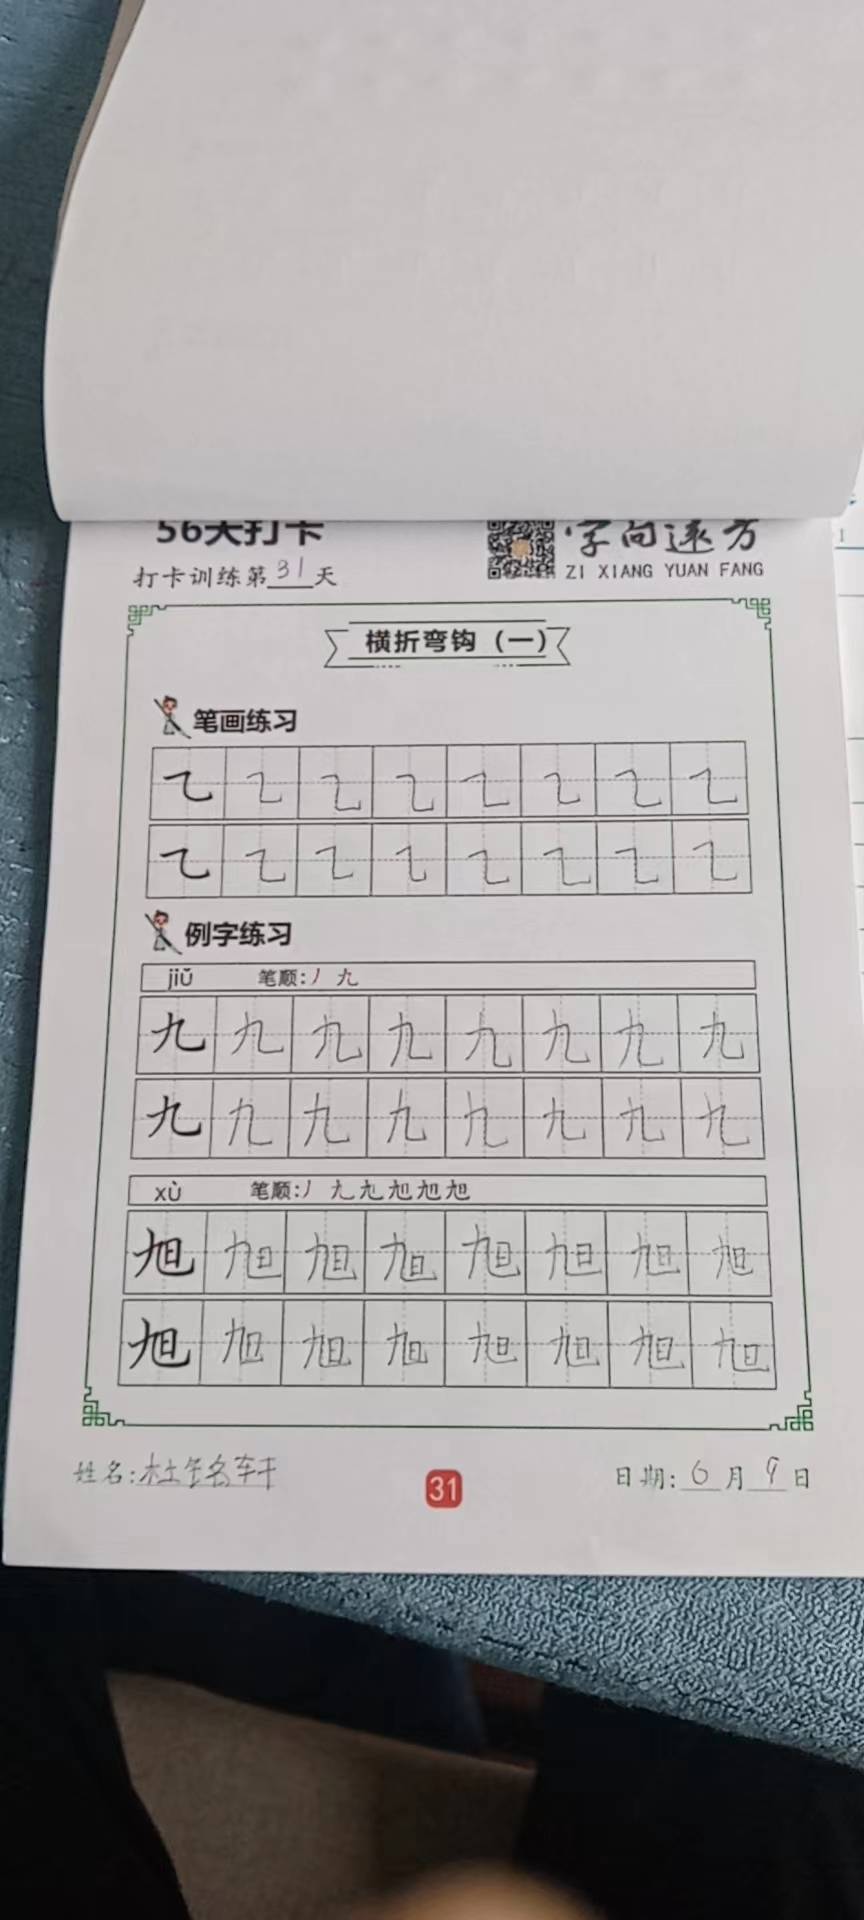 56天打卡
字向远方
打卡训练第31天
ZI XIANG YUAN FANG
横折弯钩（一）
笔画练习
㇈ ㇈ ㇈ ㇈ ㇈ ㇈ ㇈ ㇈
㇈ ㇈ ㇈ ㇈ ㇈ ㇈ ㇈ ㇈
例字练习
jiǔ 笔顺:丿 九
九 九 九 九 九 九 九 九
九 九 九 九 九 九 九 九
xù 笔顺:丿 九 旭 旭 旭 旭
旭 旭 旭 旭 旭 旭 旭 旭
旭 旭 旭 旭 旭 旭 旭 旭
姓名:杜 轩
31
日期:6月9日